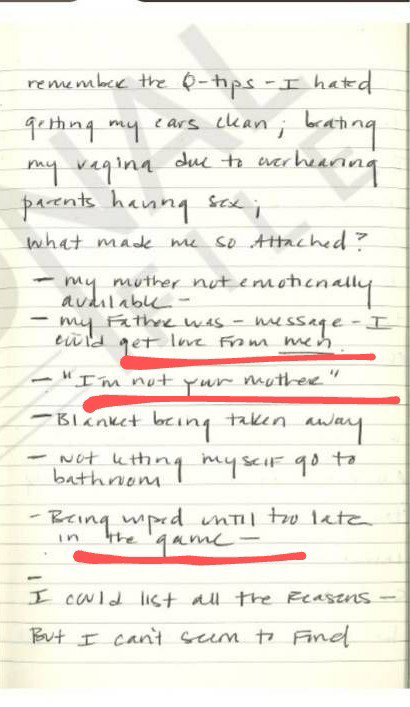 remember the Q-tips - I hated
getting my ears clean; beating
my vagina due to overhearing
parents having sex;
What made me so Attached?
- my mother not emotionally
available -
- my Father was - message - I
could get love from men.
- "I'm not your mother"
- Blanket being taken away
- Not letting myself go to
bathroom
- Being wiped until too late
in the game -
-
I could list all the Reasons -
But I can't seem to Find
ONAL
FILE